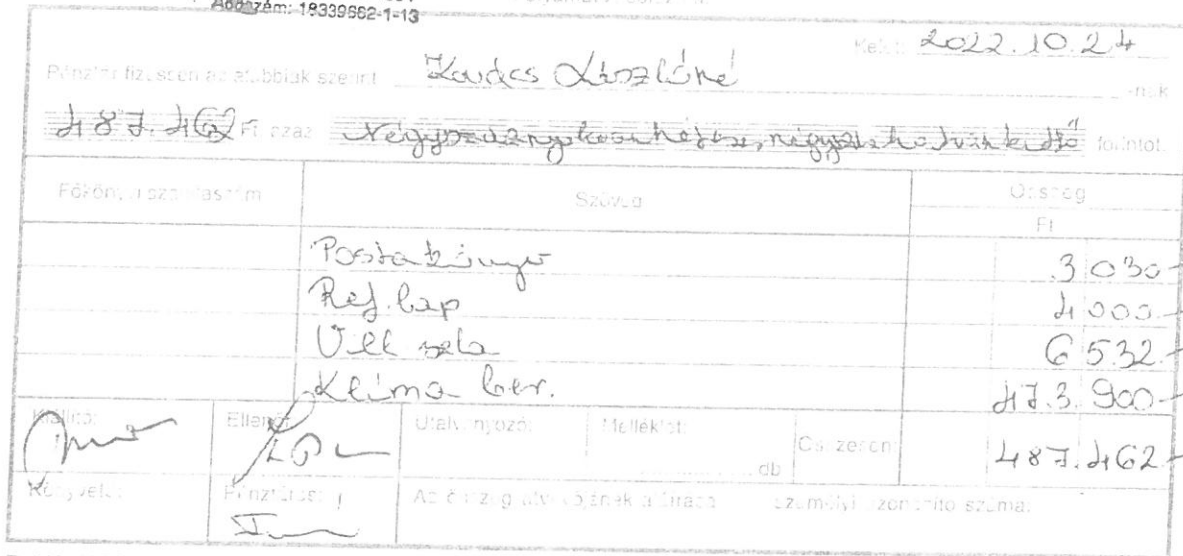 Adószám: 18339662-1-13
Kelt: 2022.10.24
Pénztár fizessen az alábbiak szerint Kovács Lászlóné -nak
487.462 Ft, azaz Négyszáznyolcvanhétezer, négyszázhatvankettő forintot.
Főkönyvi számlaszám Szöveg Összeg
Ft
Postakönyv 3 030.-
Ref. lap 4 000.-
Vill 6 532.-
Klíma ber. 473.900-
Kiállító: Ellenőr: Utalványozó: Melléklet: db Összesen: 487.462.-
Könyvelő: Pénztáros: Az összeg átvevőjének aláírása személyi azonosító száma: